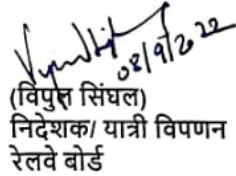 08/9/2022
(विपुल सिंघल)
निदेशक/ यात्री विपणन
रेलवे बोर्ड